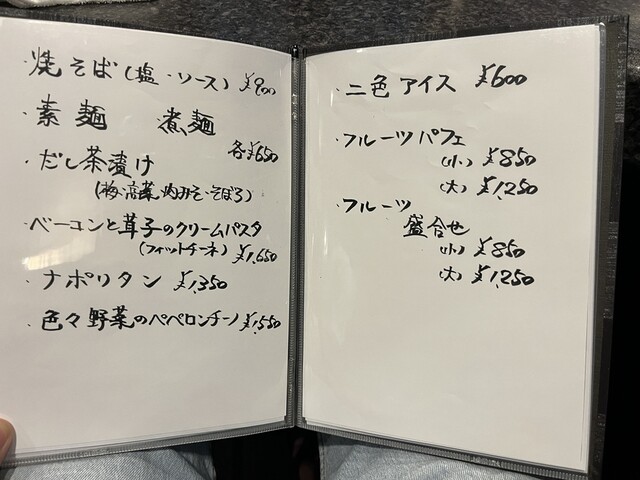 ・焼そば(塩・ソース) ¥900
・素麺 煮麺
各¥650
・だし茶漬け
(梅・高菜・肉みそ・そぼろ)
・ベーコンと茸子のクリームパスタ
(フィットチーネ) ¥1,650
・ナポリタン ¥1,350
・色々野菜のペペロンチーノ ¥1,550
・二色アイス ¥600
・フルーツパフェ
(小) ¥850
(大) ¥1,250
・フルーツ
盛合せ
(小) ¥850
(大) ¥1,250